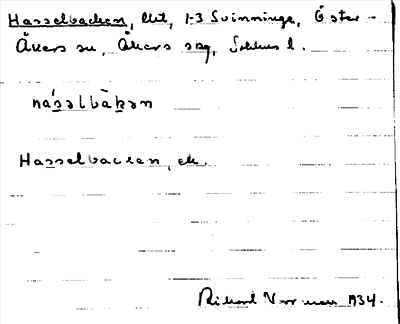 Hasselbacken, lht, 1-3 Svinninge, Öster-
Åkers sn, Åkers skg, Sthlms l.
hásəlbàkən
Hasselbacken, ek.
Rickard Norrman 1934.